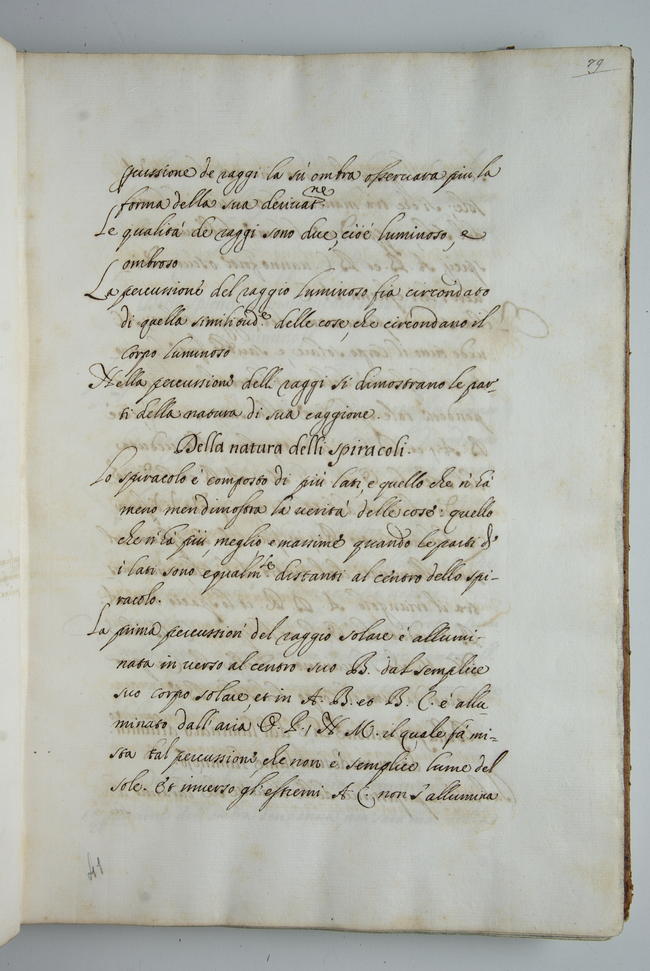 79
pcussione de raggi la su ombra osservara piu la
forma della sua derivat.ne
Le qualità de raggi sono due, cioé luminoso, e
ombroso
La percussione del raggio luminoso fia circondato
di quella similitud.e delle cose, che circondano il
corpo luminoso
Nella percussione delli raggi si dimostrano le par-
ti della natura di sua caggione.
Della natura delli spiracoli.
Lo spiracolo é composto di più lati, e quello che n'hà
meno men dimostra la verità delle cose: quello
che n'hà più, meglio e massime quando le parti de
i lati sono equalm.te distanti al centro dello spi-
racolo.
La prima percussion del raggio solare é allumi-
nata in verso al centro suo B. dal semplice
suo corpo solare, et in A. B. et B. C. é allu-
minato dall'aria O. P., N M. il quale fá mi-
sta tal percussione, che non é semplice lume del
sole. Et inverso gl'estremi A C. non s'allumina
41